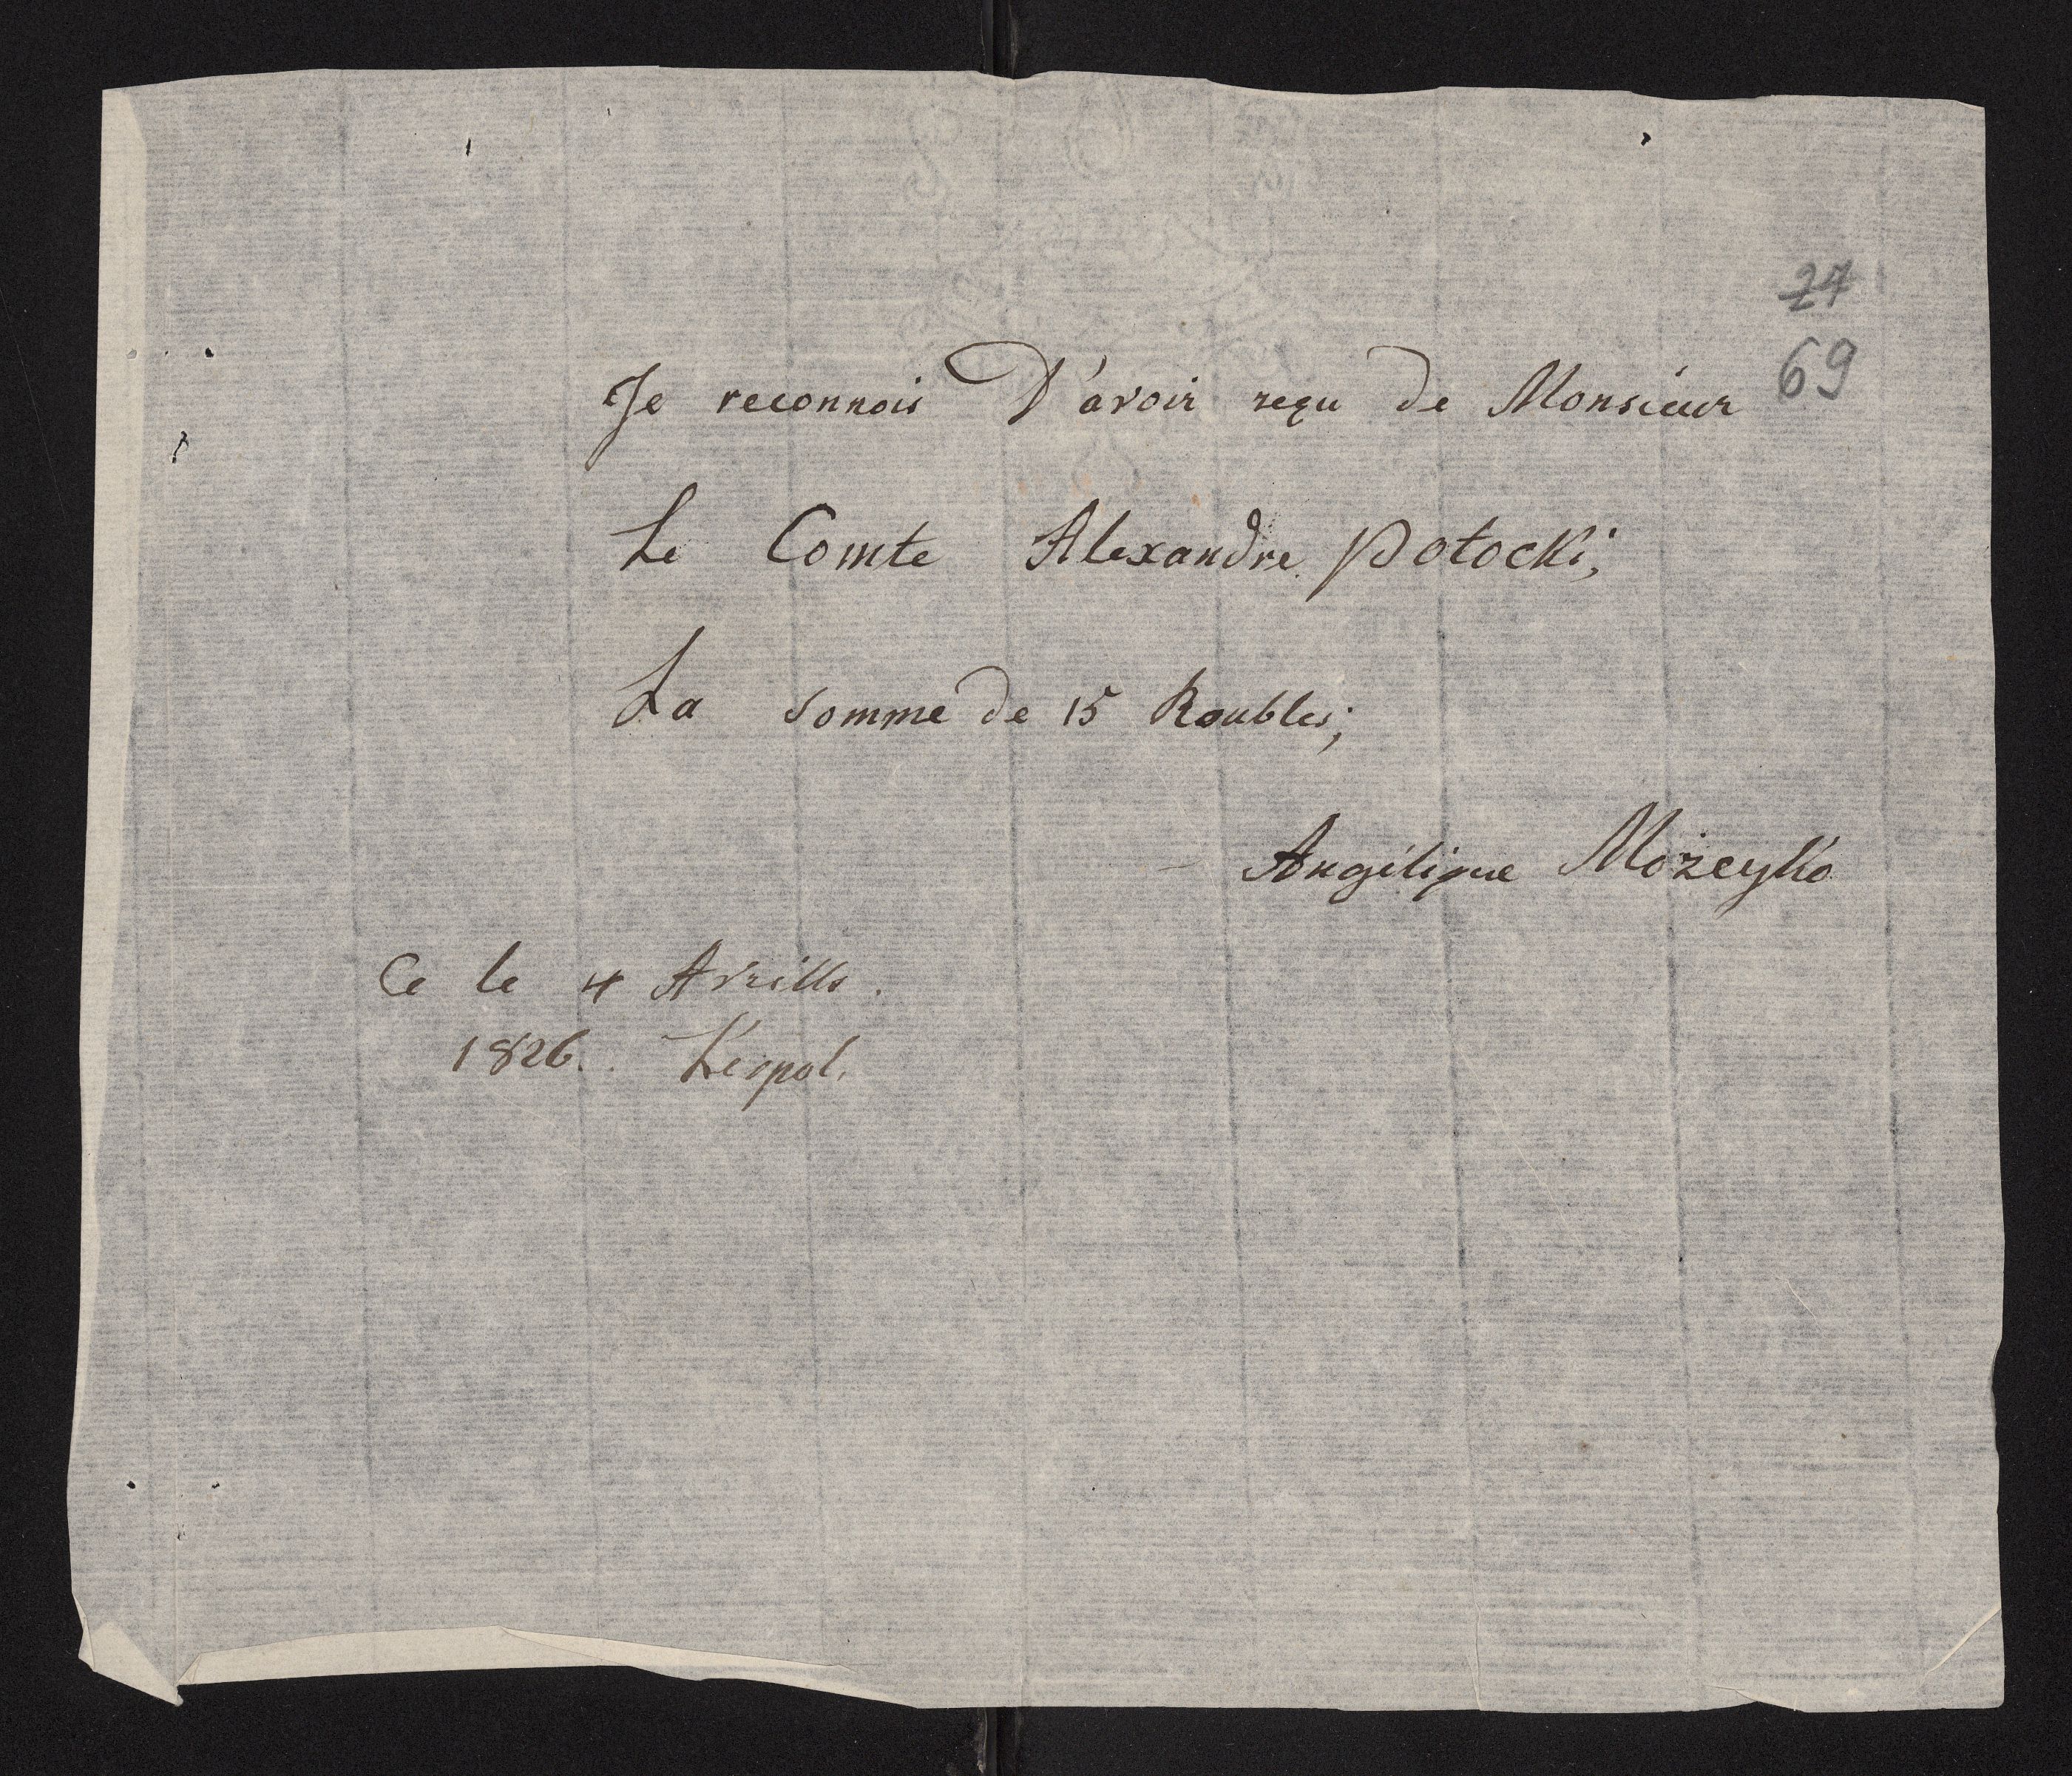 27
69
Je reconnois D'avoir reçu de Monsieur
Le Comte Alexandre Potocki;
La Somme de 15 Roubles;
Angélique Możeyko
Ce le 4 Avrille.
1826.